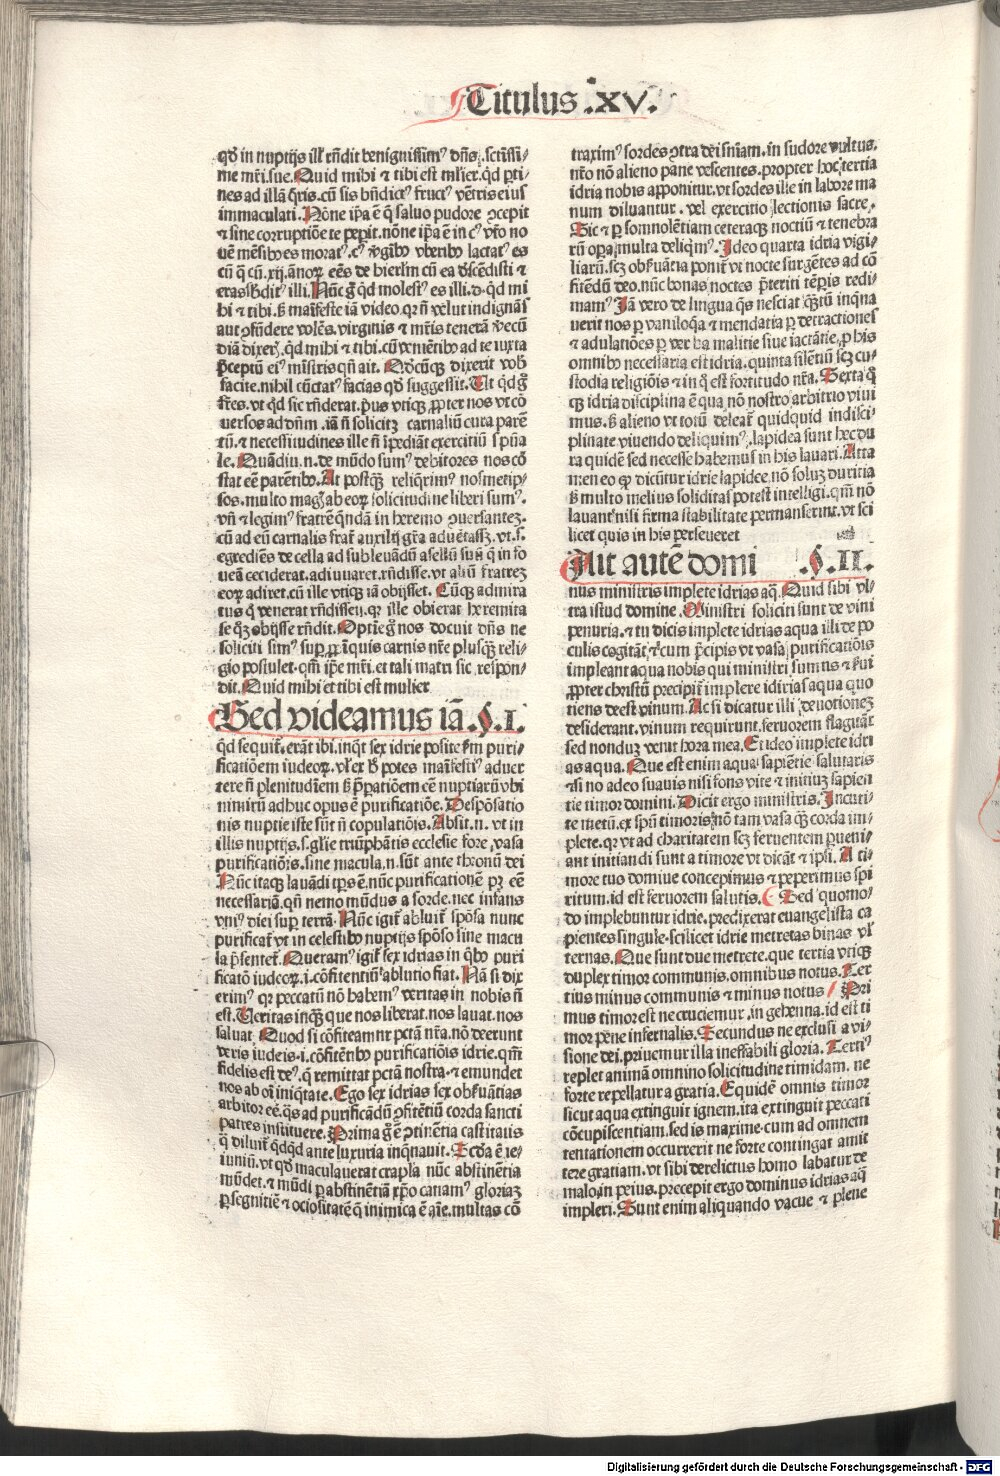 Titulus .xv.
qđ in nuptijs illi rñdit benignissimꝰ dñs. sctissi-
me mr̃i sue. Quid mihi ⁊ tibi est ml̕ier. qd ꝑti-
nes ad illã q̃ris. cũ sis bñdictꝰ fructꝰ vẽtris eius
immaculati. Nõne ip̃a ẽ q̃ saluo pudore ꝯcepit
⁊ sine corruptiõe te peꝑit. nõne ip̃a ẽ in cꝰ vt̃o no
uẽ mẽsibꝰ es moratꝰ. cꝰ ꝟgĩbꝰ vberibꝰ lactatꝰ es
cũ q̃ cũ .xij. ãnoꝝ eẽs de hierl̃m cũ ea dscẽdisti ⁊
eras sbditꝰ illi. Nũc g̃ qd molestꝰ es illi. d. qd mi
hi ⁊ tibi. ß maĩfeste iã video. qꝛ ñ velut indignãs
aut ꝯfũdere volẽs. virginis ⁊ mr̃is tenerã ꝟecũ
diã dixeꝝ. qd mihi ⁊ tibi. cũ veniẽtibꝰ ad te iuxta
p̃ceptũ eiꝰ mĩstris qñ ait. Qd̃cũqꝫ dixerit vob̃
facite. nihil cũctatꝰ facias qđ suggessit. Ut qd g̃
fr̃es. vt qđ sic rñderat. pꝰus vtiqꝫ ꝓpter nos vt cõ
uersos ad dñm. iã ñ solicitꝫ carnaliũ cura parẽ
tũ. ⁊ necessitudines ille ñ ĩpediãt exercitiũ sp̃ua
le. Quãdiu .n. de mũdo sumꝰ debitores nos cõ
stat eẽ parẽtibꝰ. At postqꝫ reliq̃rimꝰ nosmetip-
sos. multo mag̃ ab eoꝝ solicitudine liberi sumꝰ.
vñ ⁊ legimꝰ fratrẽ q̃ndã in heremo ꝯuersantẽ.
cũ ad eũ carnalis frat̃ auxilij gr̃a aduẽtasset. vt. s.
egrediẽs de cella ad subleuãdũ asellũ suũ q̃ in fo
ueã ceciderat. adiuuaret. rñdisse. vt aliũ fratreꝫ
eoꝝ adiret. cũ ille vtiqꝫ iã obijsset. Cũqꝫ admira
tus q̃ venerat rñdisset. qꝛ ille obierat heremita
se qꝫ obijsse rñdit. Optĩe g̃ nos docuit dñs ne
soliciti simꝰ suꝑ ꝓpĩquis carnis nr̃e plusqꝫ reli-
gio postulet. qm̃ ip̃e mr̃i. et tali matri sic respon-
dit. Quid mihi et tibi est mulier
Sed videamus iã .§.I.
qđ sequit̃. erãt ibi. inqt sex idrie posite ẜm puri-
ficatiõem iudeoꝝ. vl̃ ex h̃ potes maĩfesti⁹ aduer
tere ñ plenitudĩem ß p̃ꝑatiõem eẽ nuptiarũ vbi
nimirũ adhuc opus ẽ purificatiõe. Despõsatio
nis nuptie iste sũt ñ copulatiõis. Absit .n. vt in
illis nuptijs .s. gl̃ie triũphãtis ecclesie fore. vasa
purificatiõis. sine macula .n. sũt ante thronũ dei
Nũc itaqꝫ lauãdi tp̃s ẽ. nũc purificationẽ pꝫ eẽ
necessariã. qñ nemo mũdus a sorde. nec infans
vniꝰ diei suꝑ terrã. Nũc igit̃ abluit̃ spõsa nunc
purificat̃ vt in celestibꝰ nuptijs spõso sine macu
la p̃sentet̃. Queramꝰ igit̃ sex idrias in q̃bꝰ puri
ficatõ iudeoꝝ .i. cõfitentiũ ablutio fiat. Nã si dix
erimꝰ qꝛ peccatũ nõ habemꝰ veritas in nobis ñ
est. Ueritas inqꝫ que nos liberat. nos lauat. nos
saluat Quod si cõfiteamur pctã nr̃a. nõ deerunt
veris iudeis .i. cõfitẽtibꝰ purificatiõis idrie. qm̃
fidelis est deꝰ. q̃ remittat pctã nostra. ⁊ emundet
nos ab oĩ iniqtate. Ego sex idrias sex obß̃uãtias
arbitor eẽ. q̃s ad purificãdũ ꝯfitẽtiũ corda sancti
patres instituere. Prima g̃ ẽ ꝯtinẽtia castitatis
q̃ diluit̃ qdqd ante luxuria inqnauit. Scd̃a ẽ ie-
iuniũ. vt qđ maculauerat crapula nũc abstinẽtia
mũdet. ⁊ mũdi ꝑ abstinẽtiã xp̃o canamꝰ gloriaꝫ
ꝑ segnitiẽ ⁊ ociositatẽ q̃ inimica ẽ aĩe. multas cõ
traximꝰ sordes ꝯtra dei sñiam. in sudore vultus.
nr̃o nõ alieno pane vescentes. propter hoc tertia
idria nobis apponitur. vt sordes ille in labore ma
num diluantur. vel exercitio lectionis sacre.
Sic ⁊ ꝑ somnolẽtiam ceteraqꝫ noctiũ ⁊ tenebra
rũ oꝑa multa deliqm̃ꝰ. Ideo quarta idria vigi-
liarũ. scꝫ obß̃uãtia ponit̃ vt nocte surgẽtes ad cõ
fitẽdũ deo. nũc bonas noctes p̃teriti tẽpis redi-
mamꝰ Iã vero de lingua q̃s nesciat qꝫtũ inqna
uerit nos ꝑ vaniloqa ⁊ mendatia ꝑ detractiones
⁊ adulatiões ꝑ verba malitie siue iactãtie. ꝓ his
omnibꝰ necessaria est idria. quinta silẽtiũ scꝫ cu-
stodia religiõis ⁊ in q̃ est fortitudo nr̃a. Sexta q̃
qꝫ idria disciplina ẽ qua nõ nostro arbitrio viui
mus. ß alieno vt totũ deleat̃ quidquid indisci-
plinate viuendo deliquimꝰ. lapidea sunt hec du
ra quidẽ sed necesse habemus in his lauari. Atta
men eo ꝙ dicũtur idrie lapidee. nõ soluꝫ duritia
ß multo melius soliditas potest intelligi. qm̃ nõ
lauant̃ nisi firma stabilitate permanserint. vt sci
licet quis in his perseueret
Ait autẽ domi .§.II.
nus ministris implete idrias aq̃. Quid sibi vl-
tra istud domine. Ministri soliciti sunt de vini
penuria. ⁊ tu dicis implete idrias aqua illi de po
culis cogitãt. ⁊ cum p̃cipis vt vasa purificatiõis
impleant aqua nobis qui ministri sumus ⁊ ß̃ui
ꝓpter christũ precipit̃ implere idrias aqua quo
tiens deest vinum. Ac si dicatur illi deuotioneꝫ
desiderant. vinum requirunt. feruorem flagitãt
sed nonduꝫ venit hora mea. Et ideo implete idri
as aqua. Que est enim aqua sapiẽtie salutaris
⁊ si no adeo suauis nisi fons vite ⁊ initiuꝫ sapien
tie timor domini. Dicit ergo ministris. Incuti-
te metũ. ex spũ timoris. nõ tam vasa qꝫ corda im-
plete. qꝛ vt ad charitatem scꝫ feruentem ꝑueni-
ant initiandi sunt a timore vt dicãt ⁊ ipsi. A ti-
more tuo domine concepimus ⁊ peperimus spi
ritum. id est feruorem salutis. Sed quomo-
do implebuntur idrie. predixerat euangelista ca
pientes singule. scilicet idrie metretas binas vl̃
ternas. Que sunt due metrete. que tertia vtiqꝫ
duplex timor communis. omnibus notus. Ter
tius minus communis ⁊ minus notus Pri
mus timor est ne cruciemur. in gehenna. id est ti
mor pene infernalis. Secundus ne exclusi a vi-
sione dei. priuemur illa ineffabili gloria. Tertiꝰ
replet animã omnino solicitudine timidam. ne
forte repellatur a gratia. Equidẽ omnis timor
sicut aqua extinguit ignem. ita extinguit peccati
cõcupiscentiam. sed is maxime. cum ad omnem
tentationem occurrerit ne forte contingat amit
tere gratiam. vt sibi derelictus homo labatur de
malo in peius. precepit ergo dominus idrias aq̃
impleri. Sunt enim aliquando vacue ⁊ plene
Digitalisierung gefördert durch die Deutsche Forschungsgemeinschaft - DFG